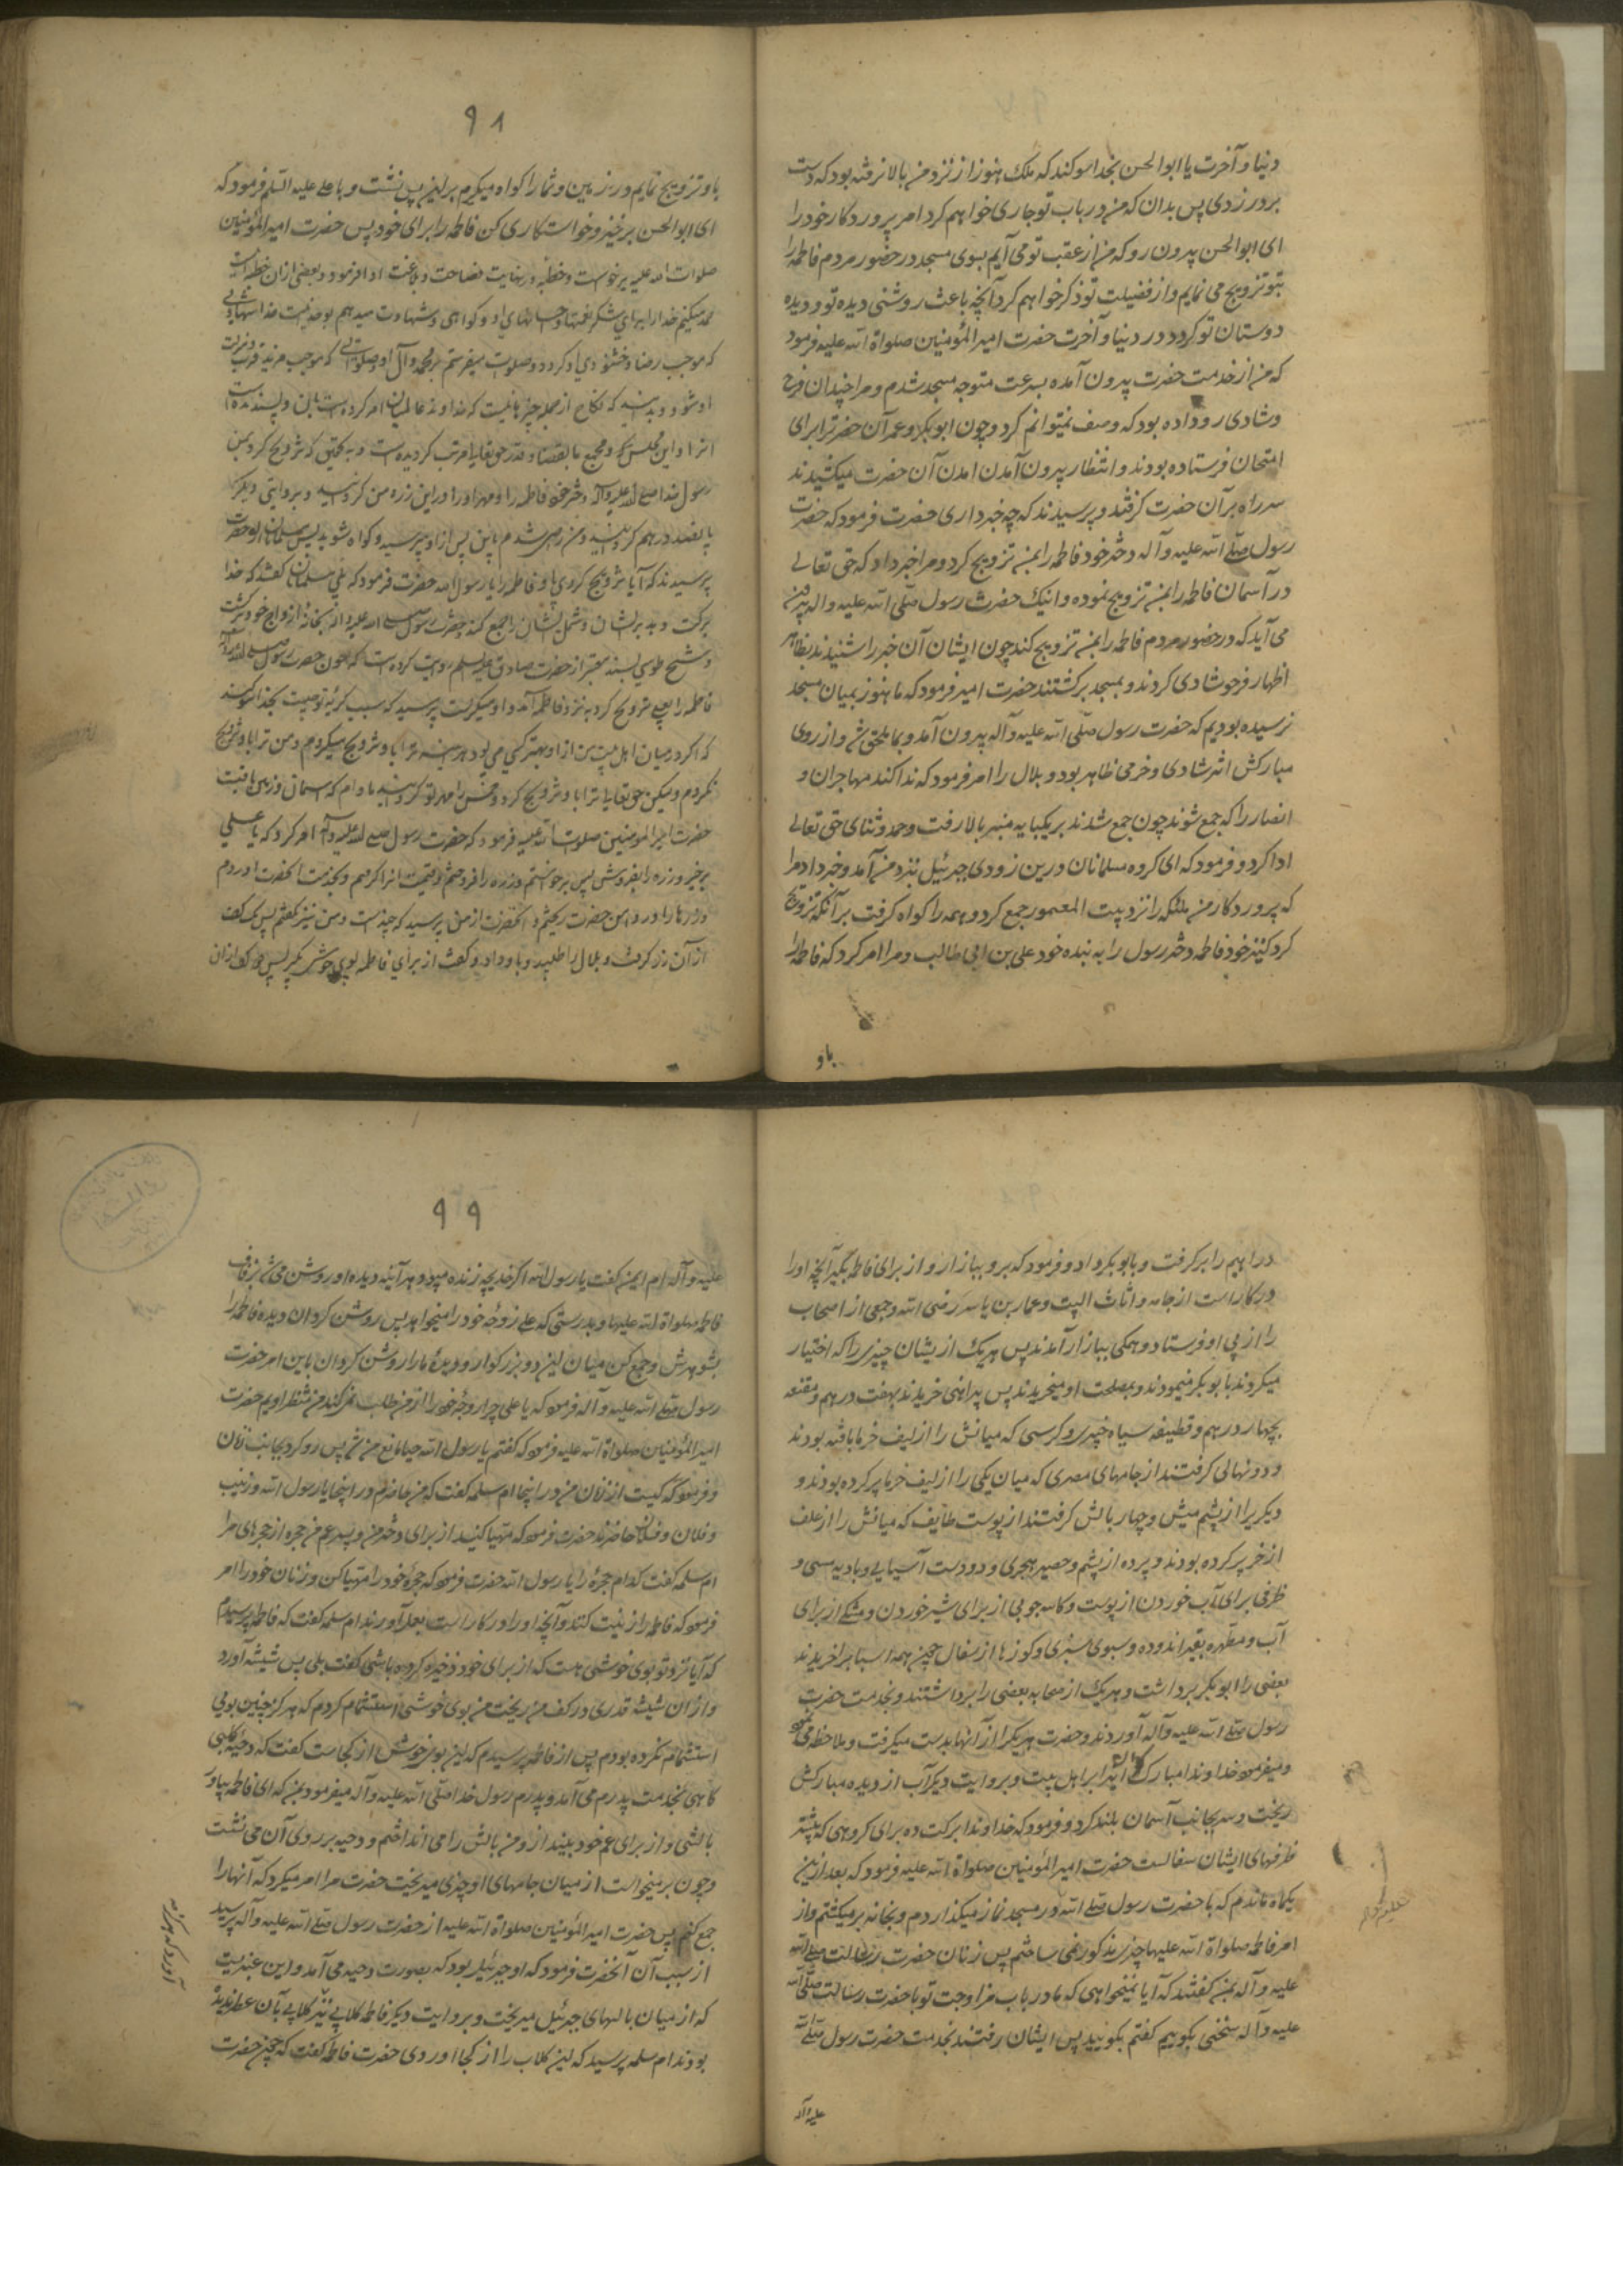 دنیا و آخرت یا ابوالحسن بخدا سوکند که ملک هنوز از نزد من بالا نرفته بود که دست
بر در زدی پس بدان که من در باب تو جاری خواهم کرد امر پروردکار خود را
ای ابوالحسن بیرون رو که من از عقب تو می آیم بسوی مسجد در حضور مردم فاطمه را
بتو تزویج می نمایم و از فضیلت تو ذکر خواهم کرد آنچه باعث روشنی دیده تو و دیده
دوستان تو کردد در دنیا و آخرت حضرت امیر المؤمنین صلواة الله علیه فرمود
که من از خدمت حضرت بیرون آمده بسرعت متوجه مسجد شدم و مرا چندان فرح
و شادی رو داده بود که وصف نمیتوانم کرد و چون ابو بکر و عمر آن حضرترا برای
امتحان فرستاده بودند و انتظار بیرون آمدن آمدن آن حضرت میکشیدند
سر راه بر آن حضرت کرفتند و پرسیدند که چه خبر داری حضرت فرمود که حضرت
رسول صلّی الله علیه و آله دختر خود فاطمه را بمن تزویج کرد و مرا خبر داد که حق تعالی
در آسمان فاطمه را بمن تزویج نموده و اینک حضرت رسول صلّی الله علیه و اله بیرون
می آید که در حضور مردم فاطمه را بمن تزویج کند چون ایشان آن خبر را شنیدند بظاهر
اظهار فرح و شادی کردند و بمسجد برکشتند حضرت امیر فرمود که ما هنوز بمیان مسجد
نرسیده بودیم که حضرت رسول صلّی الله علیه و آله بیرون آمد و بما ملحق شد و از روی
مبارکش اثر شادی و خرمی ظاهر بود و بلال را امر فرمود که ندا کند مهاجران و
انصار را که جمع شوند چون جمع شدند بر یکپایه منبر بالا رفت و حمد و ثنای حق تعالی
ادا کرد و فرمود که ای کروه مسلمانان درین زودی جبرئیل نزد من آمد و خبر داد مرا
که پروردکار من ملائکه را نزد بیت المعمور جمع کرد و همه را کواه کرفت بر آنکه تزویج
کرد کنیز خود فاطمه دختر رسول را به بنده خود علی بن ابی طالب و مرا امر کرد که فاطمه را
باو
۹۸
باو تزویج نمایم در زمین و شما را کواه میکیرم بر این پس نشست و با علی علیه السلم فرمود که
ای ابوالحسن برخیز و خواستکاری کن فاطمه را برای خود پس حضرت امیر المؤمنین
صلوات الله علیه برخواست و خطبه در نهایت فصاحت و بلاغت ادا فرمود و بعضی از ان خطبه اینست
حمد میکنم خدا را برای شکر نعمتها و احسانهای او و کواهی و شهادت میدهم بوحدانیت خدا شهادتی
که موجب رضا و خشنودی او کردد و صلوات میفرستم بر محمد و آل او صلواتی که موجب مزید قرب و منزلت
او شود و بدانید که نکاح از جمله چیزهائیست که خداوند عالمیان امر کرده است بان و پسندیده است
انرا و این مجلس و مجمع ما بقضا و قدر حق تعالی مرتب کردیده است و به تحقیق که تزویج کرد بمن
رسول خدا صلی الله علیه و آله دختر خود فاطمه را و مهر او را این زره من کردانید و بروایتی دیکر
پانصد درهم کردانید و من راضی شدم باین پس از او بپرسید و کواه شوید پس مسلمانان از حضرت
پرسیدند که آیا تزویج کردی باو فاطمه را یا رسول الله حضرت فرمود که بلی مسلمانان کفتند که خدا
برکت دهد بر ایشان و شمل ایشان را جمع کند حضرت رسول صلی الله علیه و آله بخانه ازواج خود برکشت
و شیخ طوسی بسند معتبر از حضرت صادق علیه السلم روایت کرده است که چون حضرت رسول صلی الله علیه و آله
فاطمه را بعلی تزویج کرد به نزد فاطمه آمد و او میکریست پرسید که سبب کریه تو چیست بخدا سوکند
که اکر در میان اهل بیت من از او بهتر کسی می بود هر آینه ترا باو تزویج میکردم و من ترا باو تزویج
نکردم ولیکن حق تعالی ترا باو تزویج کرد و خمس را مهر تو کردانید مادام که آسمان و زمین باقیست
حضرت امیر المومنین صلوات الله علیه فرمود که حضرت رسول صلی الله علیه و آله امر کرد که یا علی
برخیز و زره را بفروش پس برخواستم و زره را فروختم و قیمت انرا کرفتم و بخدمت انحضرت اوردم
و زرها را در دامن حضرت ریختم و انحضرت از من نپرسید که چند است و من نیز نکفتم پس یک کف
از آن زر کرفت و بلال را طلبید و باو داد و کفت از برای فاطمه بوی خوش بکیر پس دو کف از ان
دراهم را بر کرفت و بابوبکر داد و فرمود که برو ببازار و از برای فاطمه بکیر آنچه او را
در کار است از جامه و اثاث البیت و عمار بن یاسر رضی الله و جمعی از اصحاب
را از پی او فرستاد و همکی ببازار آمدند پس هر یک از یشان چیزی را که اختیار
میکردند بابوبکر مینمودند و بمصلحت او میخریدند پس پیراهنی خریدند بهفت درهم و مقنعه
بچهار درهم و قطیفه سیاه خیبری و کرسی که میانش را از لیف خرما بافته بودند
و دو نهالی کرفتند از جامهای مصری که میان یکی را از لیف خرما پر کرده بودند و
دیکریرا از پشم میش و چهار بالش کرفتند از پوست طایف که میانش را از علف
اذخر پر کرده بودند و پرده از پشم و حصیر هجری و دو دست آسیایی و بادیه مسی و
ظرفی برای آب خوردن از پوست و کاسه چوبی از برای شیر خوردن و مشکی از برای
آب و مطهره بقیر اندوده و سبوی سبزی و کوزها از سفال چون همه اسبابرا خریدند
بعضی را ابوبکر برداشت و هر یک از صحابه بعضی را برداشتند و بخدمت حضرت
رسول صلّی الله علیه و آله آوردند و حضرت هر یکرا از آنها بدست میکرفت و ملاحظه می نمود
و میفرمود خداوندا مبارک کردان اینرا بر اهل بیت و بروایت دیکر آب از دیده مبارکش
ریخت و سر بجانب آسمان بلند کرد و فرمود که خداوندا برکت ده برای کروهی که بیشتر
ظرفهای ایشان سفالست حضرت امیر المؤمنین صلواة الله علیه فرمود که بعد ازین
یکماه ماندم که با حضرت رسول صلی الله در مسجد نماز میکذاردم و بخانه بر میکشتم و از
امر فاطمه صلواة الله علیها چیزی مذکور نمی ساختم پس زنان حضرت رسالت صلی الله
علیه و آله بمن کفتند که آیا نمیخواهی که ما در باب مزاوجت تو با حضرت رسالت صلّی الله
علیه و آله سخنی بکوییم کفتم بکویید پس ایشان رفتند بخدمت حضرت رسول صلی الله
علیه و آله
۹۹
علیه و آله ام ایمن کفت یا رسول الله اکر خدیجه زنده میبود هر آینه دیده او روشن می شد بزفاف
فاطمه صلواة الله علیها و بدرستی که علی زوجه خود را میخواهد پس روشن کردان دیده فاطمه را
بشوهرش و جمع کن میان این دو بزرکوار و دیدۀ ما را روشن کردان باین امر حضرت
رسول صلی الله علیه و آله فرمود که یا علی چرا زوجۀ خود را از من طلب نمیکنی من منتظر او یم حضرت
امیر المؤمنین صلواة الله علیه فرمود که کفتم یا رسول الله حیا مانع من شد پس رو کرد بجانب زنان
و فرمود که کیست از زنان من در اینجا ام سلمه کفت که من حاضرم در اینجا یا رسول الله و زینب
و فلان و فلان حاضرند حضرت فرمود که مهیا کنید از برای دختر من و پسر عم من حجره از حجرهای مرا
ام سلمه کفت کدام حجرۀ را یا رسول الله حضرت فرمود که حجرۀ خود را مهیا کن و زنان خود را امر
فرمود که فاطمه را زینت کنند و آنچه او را در کار است بعمل آورند ام سلمه کفت که فاطمه پرسیدم
که آیا نزد تو بوی خوشی هست که از برای خود ذخیره کرده باشی کفت بلی پس شیشه آورد
و از ان شیشه قدری در کف من ریخت من بوی خوشی استشمام کردم که هرکز چنین بویی
استشمام نکرده بودم پس از فاطمه پرسیدم که این بوی خوش از کجاست کفت که دحیۀ کلبی
کاهی بخدمت پدرم می آمد و پدرم رسول خدا صلّی الله علیه و آله میفرمود بمن که ای فاطمه بیا و
بالشی از برای عم خود بینداز و من بالش را می انداختم و دحیه بر روی آن می نشست
و چون بر میخواست از میان جامهای او چیزی میریخت حضرت مرا امر میکرد که آنها را
جمع کنم پس حضرت امیر المؤمنین صلواة الله علیه از حضرت رسول صلی الله علیه و آله پرسید
از سبب آن آنحضرت فرمود که او جبرئیل بود که بصورت دحیه می آمد و این عنبریست
که از میان بالهای جبرئیل میریخت و بروایت دیکر فاطمه کلابی نیز کلابی بآن عطر ندیده
بودند ام سلمه پرسید که این کلاب را از کجا اوردی حضرت فاطمه کفت که چون حضرت
آورد که هرکز